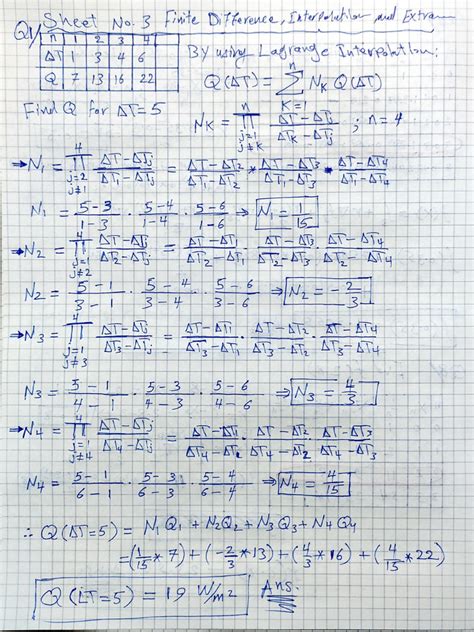 Sheet No. 3 Finite Difference, Interpolation and Extra
Q1/ n 1 2 3 4
ΔT 1 3 4 6
Q 7 13 16 22
By using Lagrange Interpolation:
Q(ΔT) = Σ_{K=1}^{n} N_K Q(ΔT)
Find Q for ΔT = 5
N_K = ∏_{j=1, j≠K}^{n} (ΔT - ΔTj)/(ΔT_K - ΔTj) ; n = 4
→ N1 = ∏_{j=2, j≠1}^{4} (ΔT - ΔTj)/(ΔT1 - ΔTj) = (ΔT - ΔT2)/(ΔT1 - ΔT2) * (ΔT - ΔT3)/(ΔT1 - ΔT3) * (ΔT - ΔT4)/(ΔT1 - ΔT4)
N1 = (5-3)/(1-3) · (5-4)/(1-4) · (5-6)/(1-6) ⇒ N1 = 1/15
→ N2 = ∏_{j=1, j≠2}^{4} (ΔT - ΔTj)/(ΔT2 - ΔTj) = (ΔT - ΔT1)/(ΔT2 - ΔT1) · (ΔT - ΔT3)/(ΔT2 - ΔT3) · (ΔT - ΔT4)/(ΔT2 - ΔT4)
N2 = (5-1)/(3-1) · (5-4)/(3-4) · (5-6)/(3-6) ⇒ N2 = -2/3
→ N3 = ∏_{j=1, j≠3}^{4} (ΔT - ΔTj)/(ΔT3 - ΔTj) = (ΔT - ΔT1)/(ΔT3 - ΔT1) · (ΔT - ΔT2)/(ΔT3 - ΔT2) · (ΔT - ΔT4)/(ΔT3 - ΔT4)
N3 = (5-1)/(4-1) · (5-3)/(4-3) · (5-6)/(4-6) ⇒ N3 = 4/3
→ N4 = ∏_{j=1, j≠4}^{4} (ΔT - ΔTj)/(ΔT4 - ΔTj) = (ΔT - ΔT1)/(ΔT4 - ΔT1) · (ΔT - ΔT2)/(ΔT4 - ΔT2) · (ΔT - ΔT3)/(ΔT4 - ΔT3)
N4 = (5-1)/(6-1) · (5-3)/(6-3) · (5-4)/(6-4) ⇒ N4 = 4/15
∴ Q(ΔT=5) = N1Q1 + N2Q2 + N3Q3 + N4Q4
= (1/15 * 7) + (-2/3 * 13) + (4/3 * 16) + (4/15 * 22)
Q(ΔT=5) = 19 W/m2 Ans.